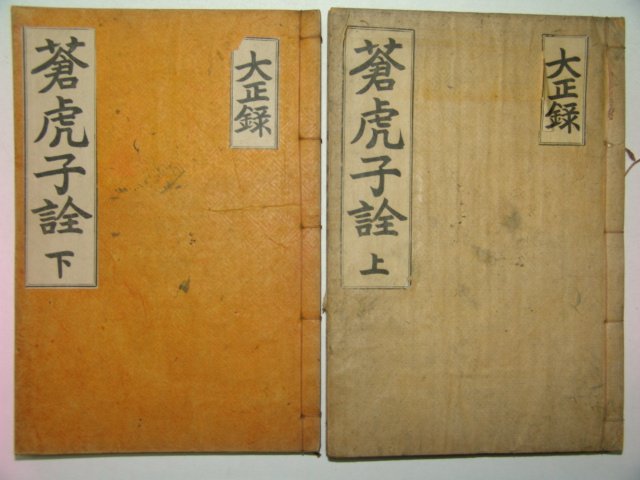 蒼虎子詮 下
大正録
蒼虎子詮 上
大正録